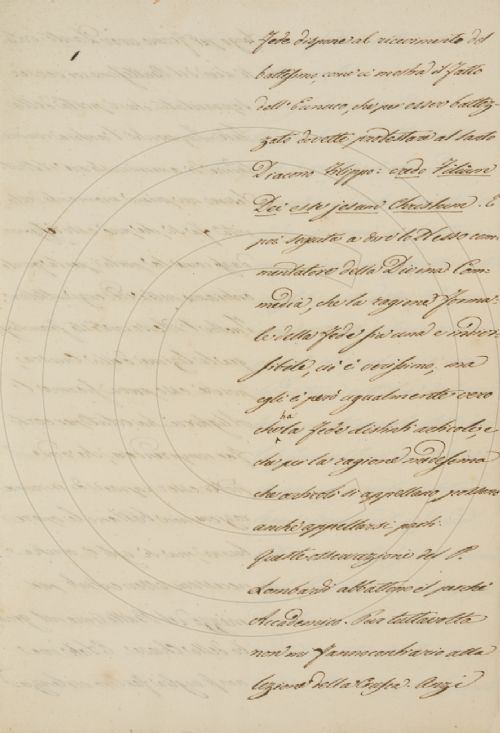 Fede dispone al ricevimento del
battesimo, come ci mostra il fatto
dell' Eunuco, che per esser battez-
zato dovette protestare al santo
Diacono Filippo: credo Filium
Dei esse Jesum Christum. E
poi seguita a dire lo stesso com-
mentatore della Divina Com-
media, che la ragione forma-
le della Fede sia una e indivi-
sibile, ciò è verissimo, ma
egli è però egualmente vero
che ha la Fede distinti articoli, e
che per la ragione medesima
che articoli si appellano, possano
anche appellarsi parti.
Queste osservazioni del P.
Lombardi abbattono il perchè
Accademico. Pur tuttavolta
non mi fanno contrario alla
lezione della Crusca. Anzi